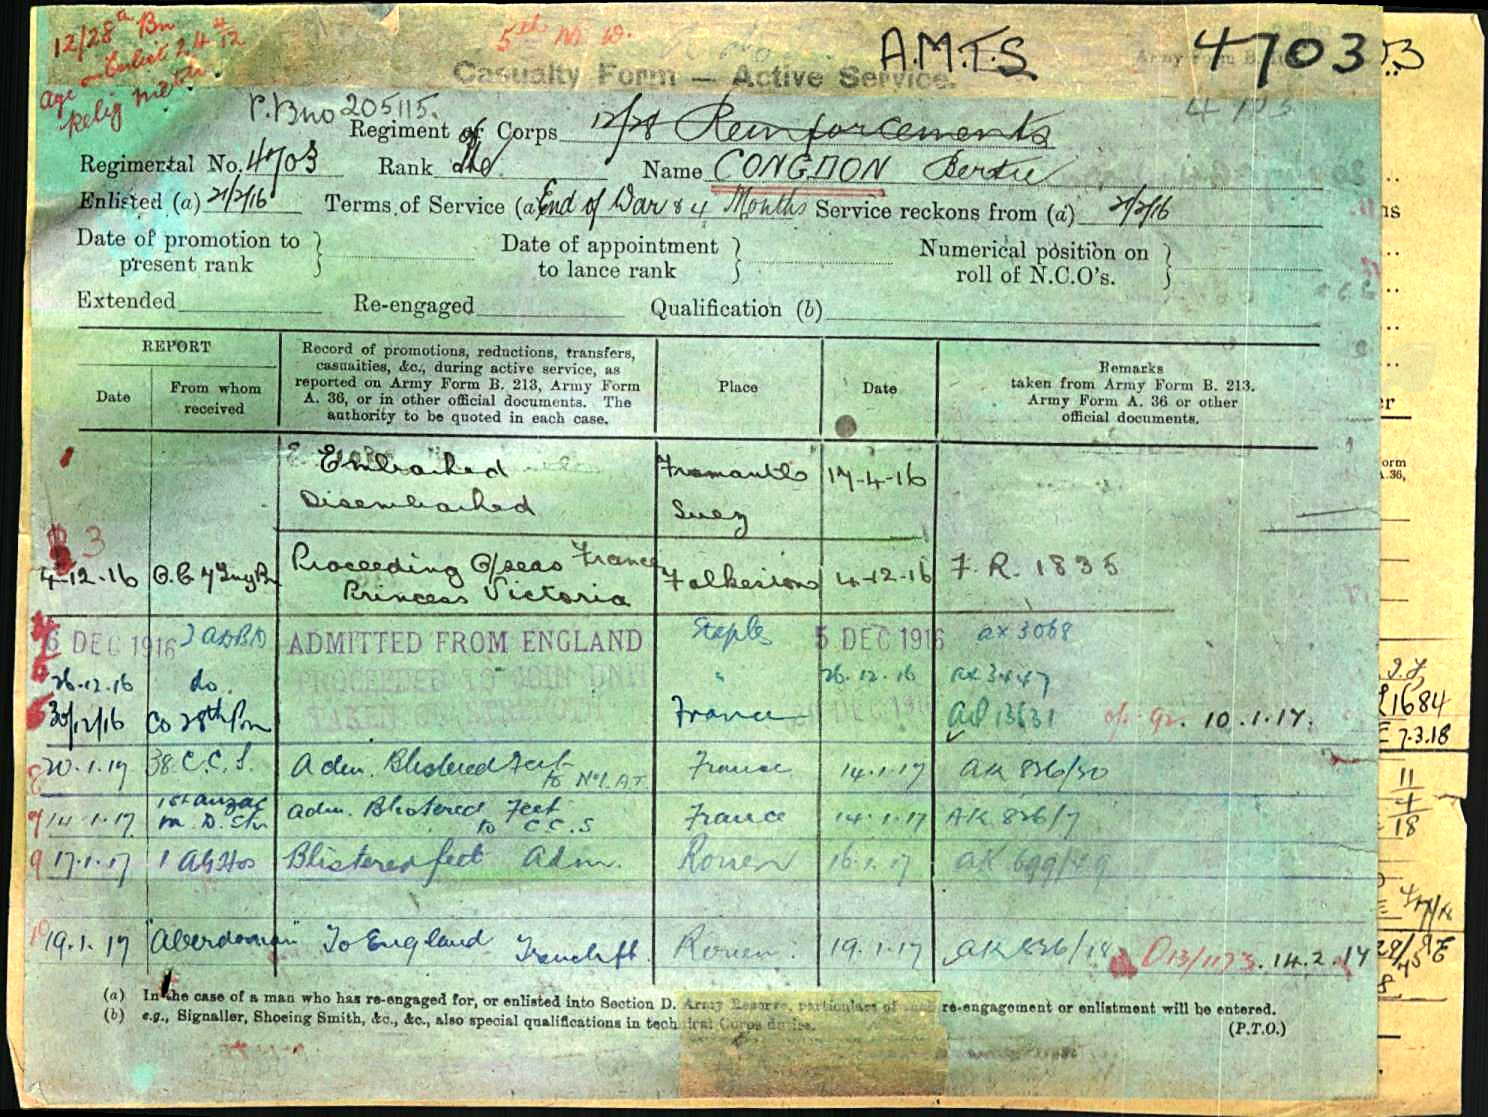 12/28th Bn
Enlist 24 4/12
Age
Relig Meth
5th M.D.
A.M.F.S
4703
Casualty Form — Active Service.
P.B no 205115.
Regiment of Corps 12/28 Reinforcements
Regimental No. 4703 Rank Name CONGDON Bertie
Enlisted (a) 2/2/16 Terms of Service (a) End of War & 4 Months Service reckons from (a) 2/2/16
Date of promotion to present rank } Date of appointment to lance rank } Numerical position on roll of N.C.O's. }
Extended Re-engaged Qualification (b)
REPORT
Date
From whom received
Record of promotions, reductions, transfers, casualties, &c., during active service, as reported on Army Form B. 213, Army Form A. 36, or in other official documents. The authority to be quoted in each case.
Place
Date
Remarks taken from Army Form B. 213. Army Form A. 36 or other official documents.
Embarked Fremantle 17-4-16
Disembarked Suez
3
4-12-16 O.C 7 Tng Bn Proceeding O/seas France Folkestone 4-12-16 F.R. 1835
Princess Victoria
6 DEC 1916 ADBD ADMITTED FROM ENGLAND Etaples 5 DEC 1916 ax 3068
26.12.16 do. PROCEEDED TO JOIN UNIT " 26.12.16 ax 3447
30/12/16 CO 28th Bn TAKEN France DEC 191 13631 10.1.17.
8 20.1.17 38 C.C.S. Adm. Blistered Feet to No 1. A.T. France 14.1.17 AK 826/30
7 14.1.17 1st Anzac M.D. Stn Adm. Blistered Feet to C.C.S France 14.1.17 AK 826/7
9 17.1.17 1 AG Hos Blistered feet Adm. Rouen 16.1.17 AK 699/49
10 19.1.17 "Aberdonian" To England Trench ft. Rouen. 19.1.17 AK 826/18 O13/1173. 14.2.17
(a) In the case of a man who has re-engaged for, or enlisted into Section D. Army Reserve, particulars of such re-engagement or enlistment will be entered.
(b) e.g., Signaller, Shoeing Smith, &c., &c., also special qualifications in technical Corps duties.
(P.T.O.)
1684
7.3.18
11
4
18